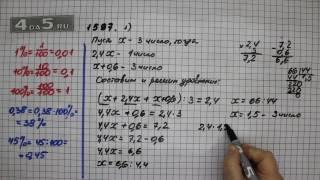 4DA5.RU
1597. 1)
Пусть x - 3 число, тогда
2,4x - 1 число
x+0,6 - 3 число
Составим и решим уравнение:
(x + 2,4x + x+0,6) : 3 = 2,4
4,4x + 0,6 = 2,4 · 3
4,4x + 0,6 = 7,2
4,4x = 7,2 - 0,6
4,4x = 6,6
x = 6,6 : 4,4
x = 66:44
x = 1,5 - 3 число
2,4 · 1,5
× 2,4
3
7,2
7,2
0,6
6,6
1% = 1/100 = 0,01
10% = 10/100 = 0,1
100% = 100/100 = 1
0,38 = 0,38 · 100% =
= 38%
45% = 45 : 100 =
= 0,45